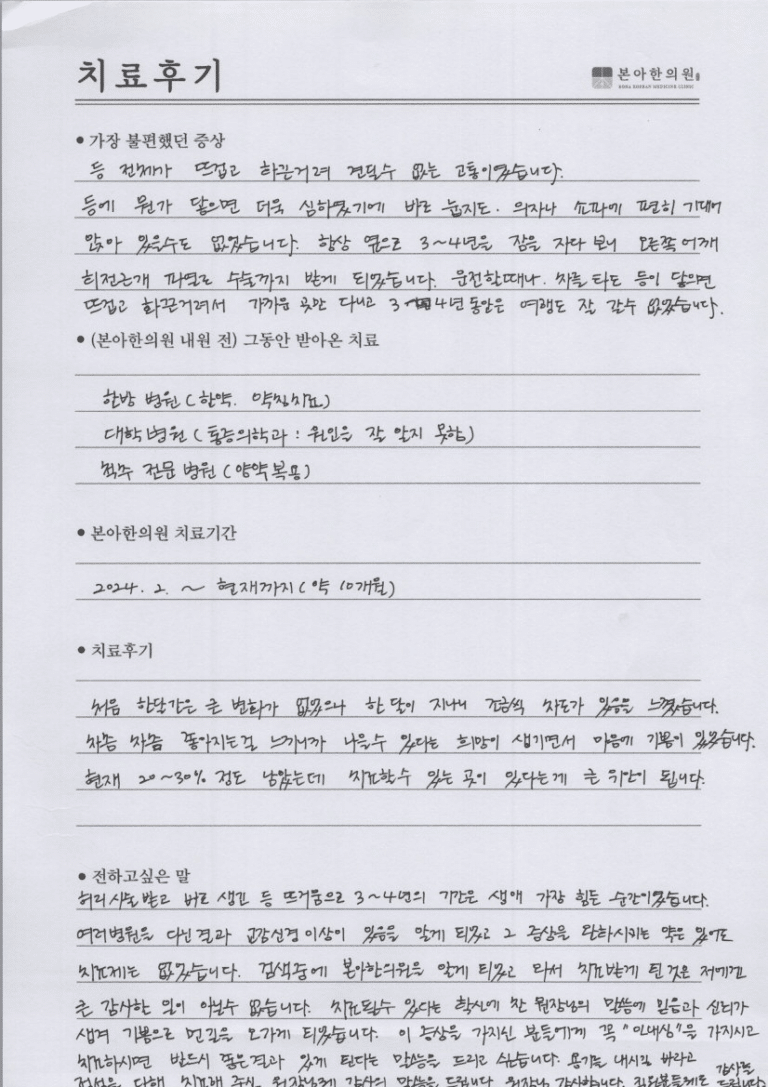 치료후기
본아한의원
BONA KOREAN MEDICINE CLINIC
• 가장 불편했던 증상
등 전체가 뜨겁고 화끈거려 견딜수 없는 고통이었습니다.
등에 뭔가 닿으면 더욱 심하였기에 바로 눕지도. 의자나 쇼파에 편히 기대어
앉아 있을수도 없었습니다. 항상 옆으로 3~4년을 잠을 자다 보니 오른쪽 어깨
회전근개 파열로 수술까지 받게 되었습니다. 운전할때나. 차를 타도 등이 닿으면
뜨겁고 화끈거려서 가까운 곳만 다니고 3~4년동안은 여행도 잘 갈수 없었습니다.
• (본아한의원 내원 전) 그동안 받아온 치료
한방 병원 (한약. 약침치료)
대학병원 (통증의학과 : 원인을 잘 알지 못함)
척추 전문 병원 (양약복용)
• 본아한의원 치료기간
2024. 2. ~ 현재까지 (약 10개월)
• 치료후기
처음 한달간은 큰 변화가 없었으나 한달이 지나니 조금씩 차도가 있음을 느꼈습니다.
차츰 차츰 좋아지는걸 느끼니까 나을수 있다는 희망이 생기면서 마음에 기쁨이 있었습니다.
현재 20~30% 정도 남았는데 치료할수 있는 곳이 있다는게 큰 위안이 됩니다.
• 전하고싶은 말
허리시술받고 바로 생긴 등 뜨거움으로 3~4년의 기간은 생애 가장 힘든 순간이었습니다.
여러병원을 다닌결과 교감신경이상이 있음을 알게 되었고 그 증상을 완화시키는 약은 있어도
치료제는 없었습니다. 검색중에 본아한의원을 알게 되었고 와서 치료받게 된것은 저에겐
큰 감사한 일이 아닐수 없습니다. 치료될수 있다는 확신에 찬 원장님의 말씀에 믿음과 신뢰가
생겨 기쁨으로 먼길을 오가게 되었습니다. 이 증상을 가지신 분들에게 꼭 "인내심"을 가지시고
치료하시면 반드시 좋은결과 있게 된다는 말씀을 드리고 싶습니다. 용기를 내시길 바라고
정성을 다해 치료해 주신 원장님께 감사의 말씀을 드립니다. 원장님 감사합니다. 직원분들께도 감사를 드립니다